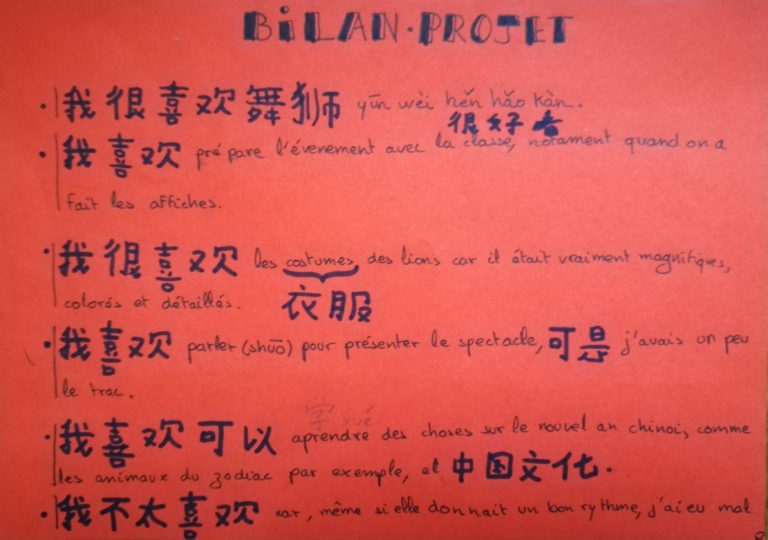 BiLAN·PROJET
• 我很喜欢舞狮 yīn wèi hěn hǎo kàn.
很好看
• 我喜欢 prépare l'évenement avec la classe, notament quand on a
fait les affiches.
• 我很喜欢 les costumes des lions car il était vraiment magnifiques,
colorés et détaillés. 衣服
• 我喜欢 parler (shuō) pour présenter le spectacle, 可是 j'avais un peu
le trac.
字 xué
• 我喜欢可以 aprendre des choses sur le nouvel an chinois, comme
les animaux du zodiac par exemple, et 中国文化.
• 我不太喜欢 car, même si elle donnait un bon rythme, j'ai eu mal